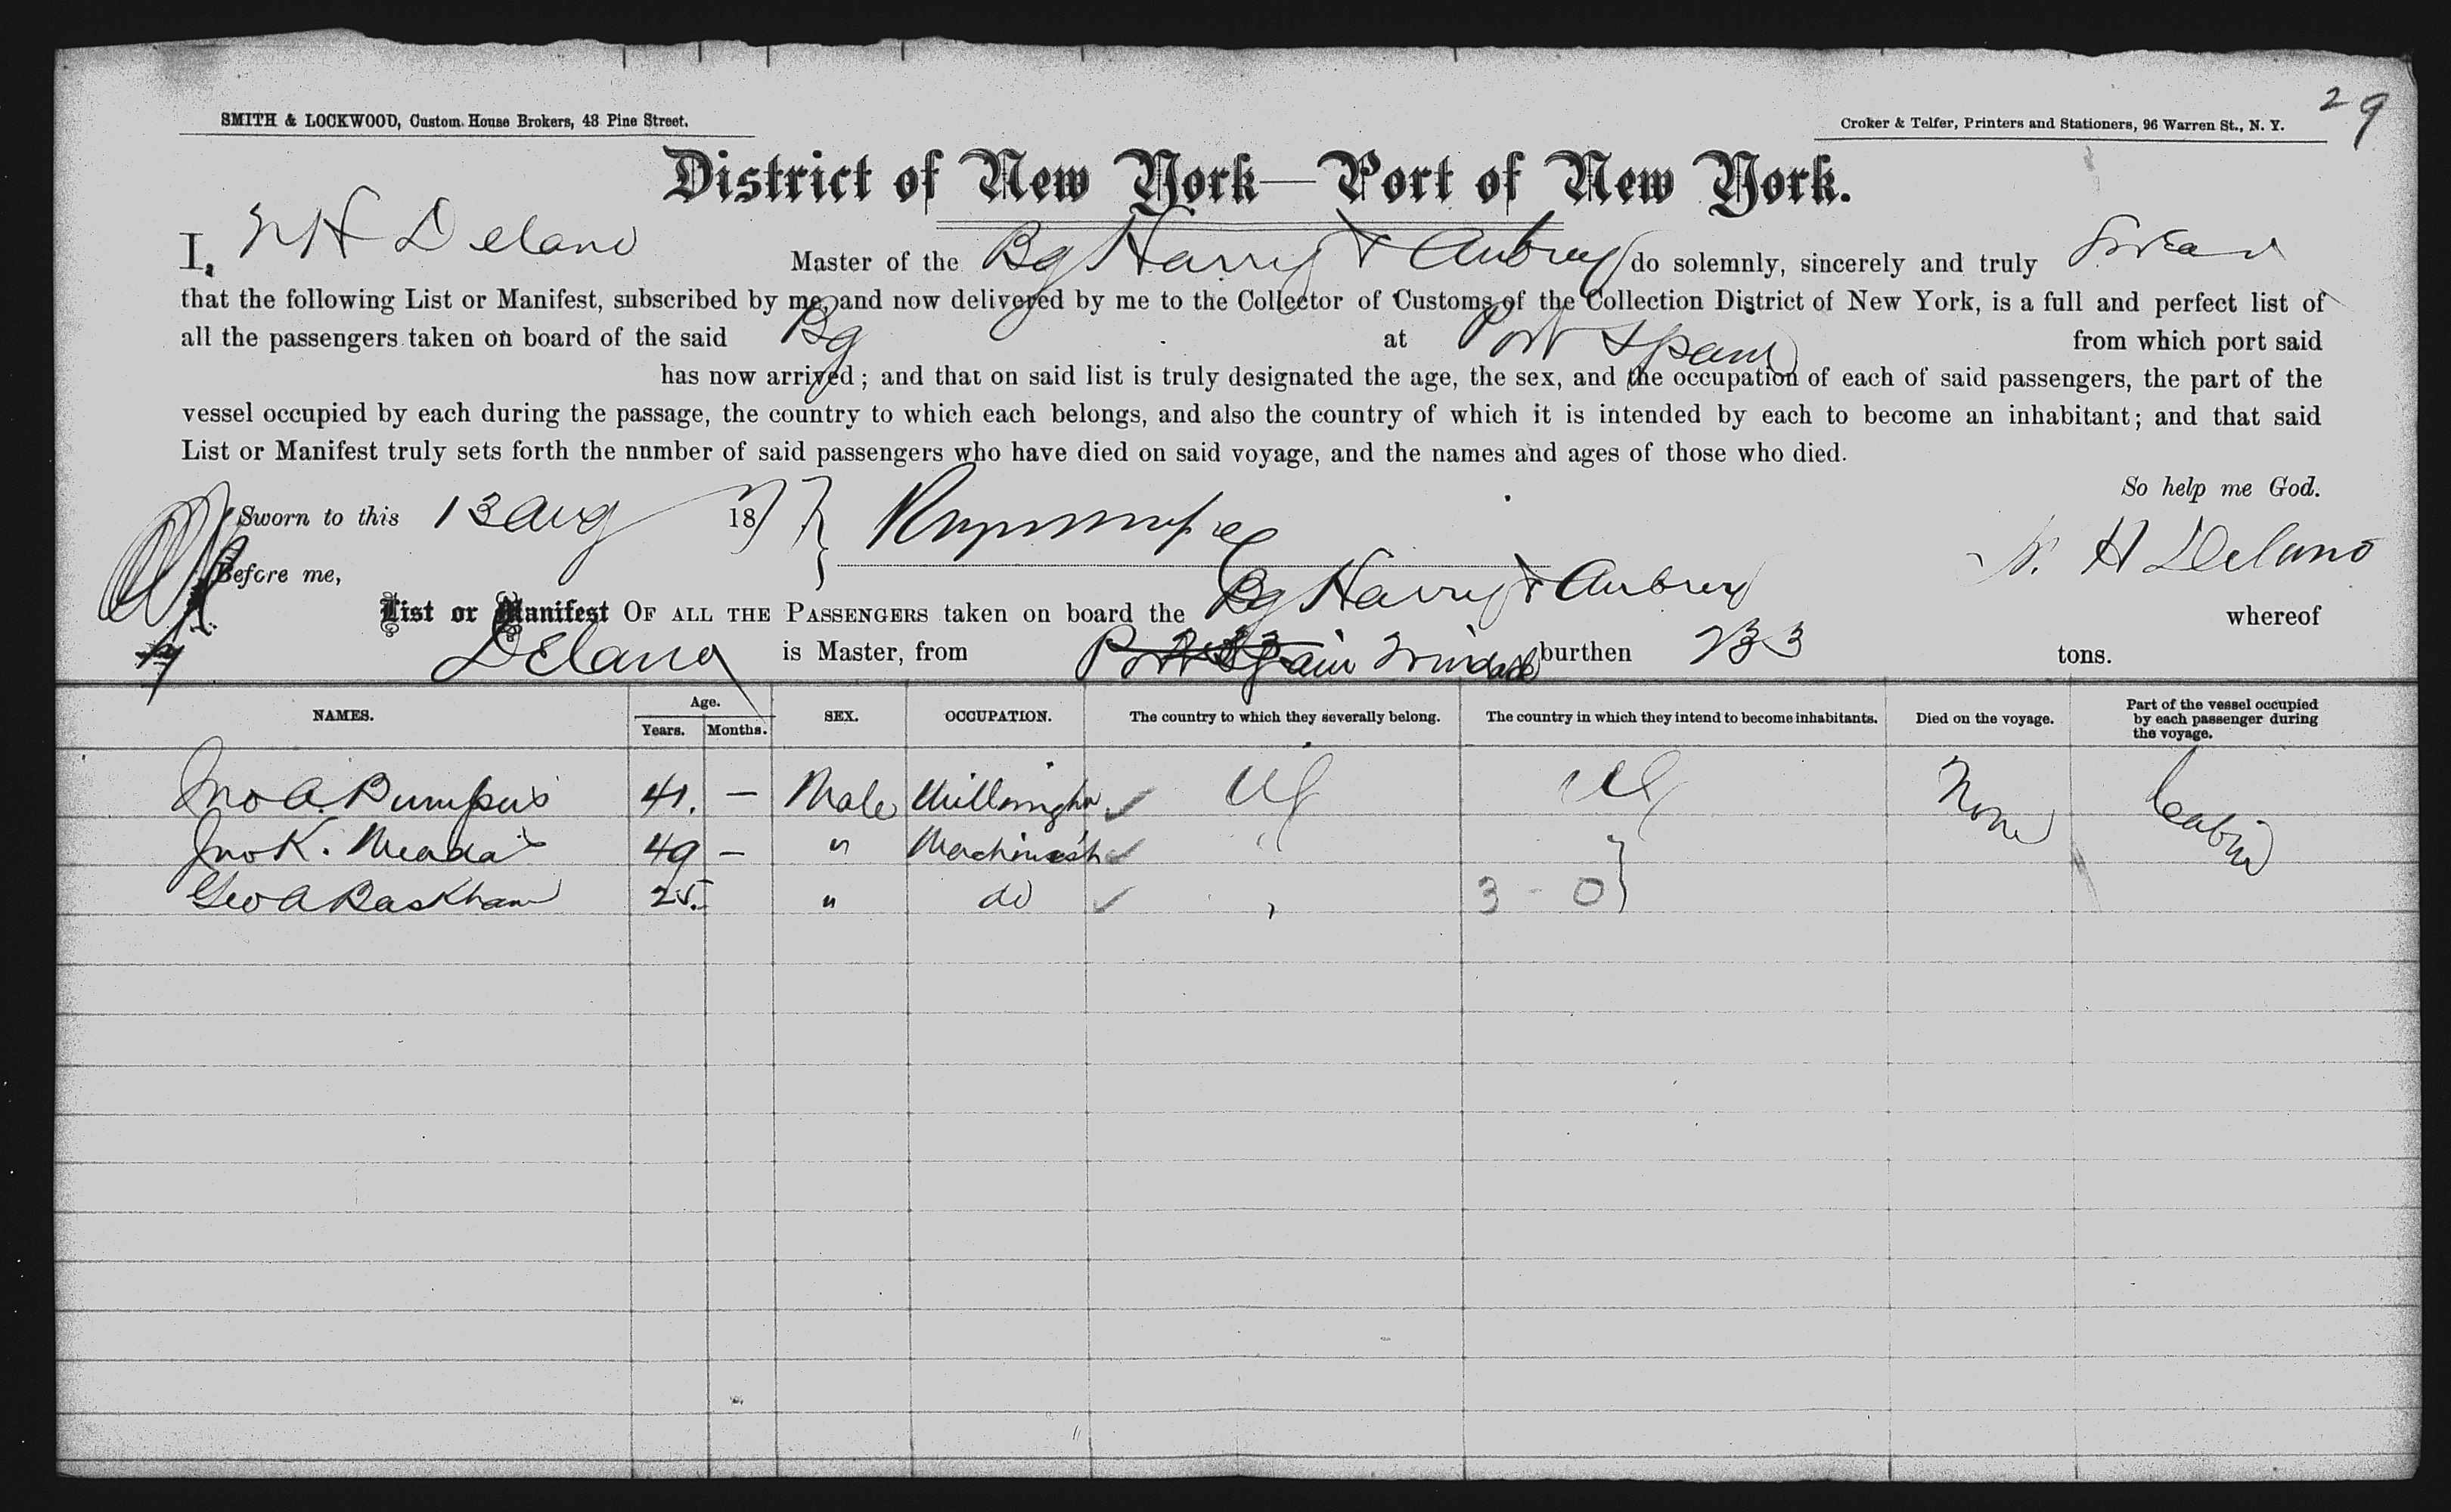 29
SMITH & LOCKWOOD, Custom House Brokers, 48 Pine Street.
Croker & Telfer, Printers and Stationers, 96 Warren St., N. Y.
District of New York—Port of New York.
I, H Delano Master of the Bg Harry & Aubrey do solemnly, sincerely and truly Swear
that the following List or Manifest, subscribed by me, and now delivered by me to the Collector of Customs of the Collection District of New York, is a full and perfect list of
all the passengers taken on board of the said Bg at Port Spain from which port said
has now arrived; and that on said list is truly designated the age, the sex, and the occupation of each of said passengers, the part of the
vessel occupied by each during the passage, the country to which each belongs, and also the country of which it is intended by each to become an inhabitant; and that said
List or Manifest truly sets forth the nnmber of said passengers who have died on said voyage, and the names and ages of those who died.
So help me God.
Sworn to this 13 Aug 1877
H Delano
Before me,
List or Manifest OF ALL THE PASSENGERS taken on board the Bg Harry & Aubrey whereof
Delano is Master, from Port Spain Trinidad burthen 233 tons.
NAMES. Age. Years. Months. SEX. OCCUPATION. The country to which they severally belong. The country in which they intend to become inhabitants. Died on the voyage. Part of the vessel occupied by each passenger during the voyage.
Jno A. Bumpus 41. — Male US US None Cabin
Jno K. Meada 49 — " Machinist "
Geo A Baskham 25. " do " 3 - 0